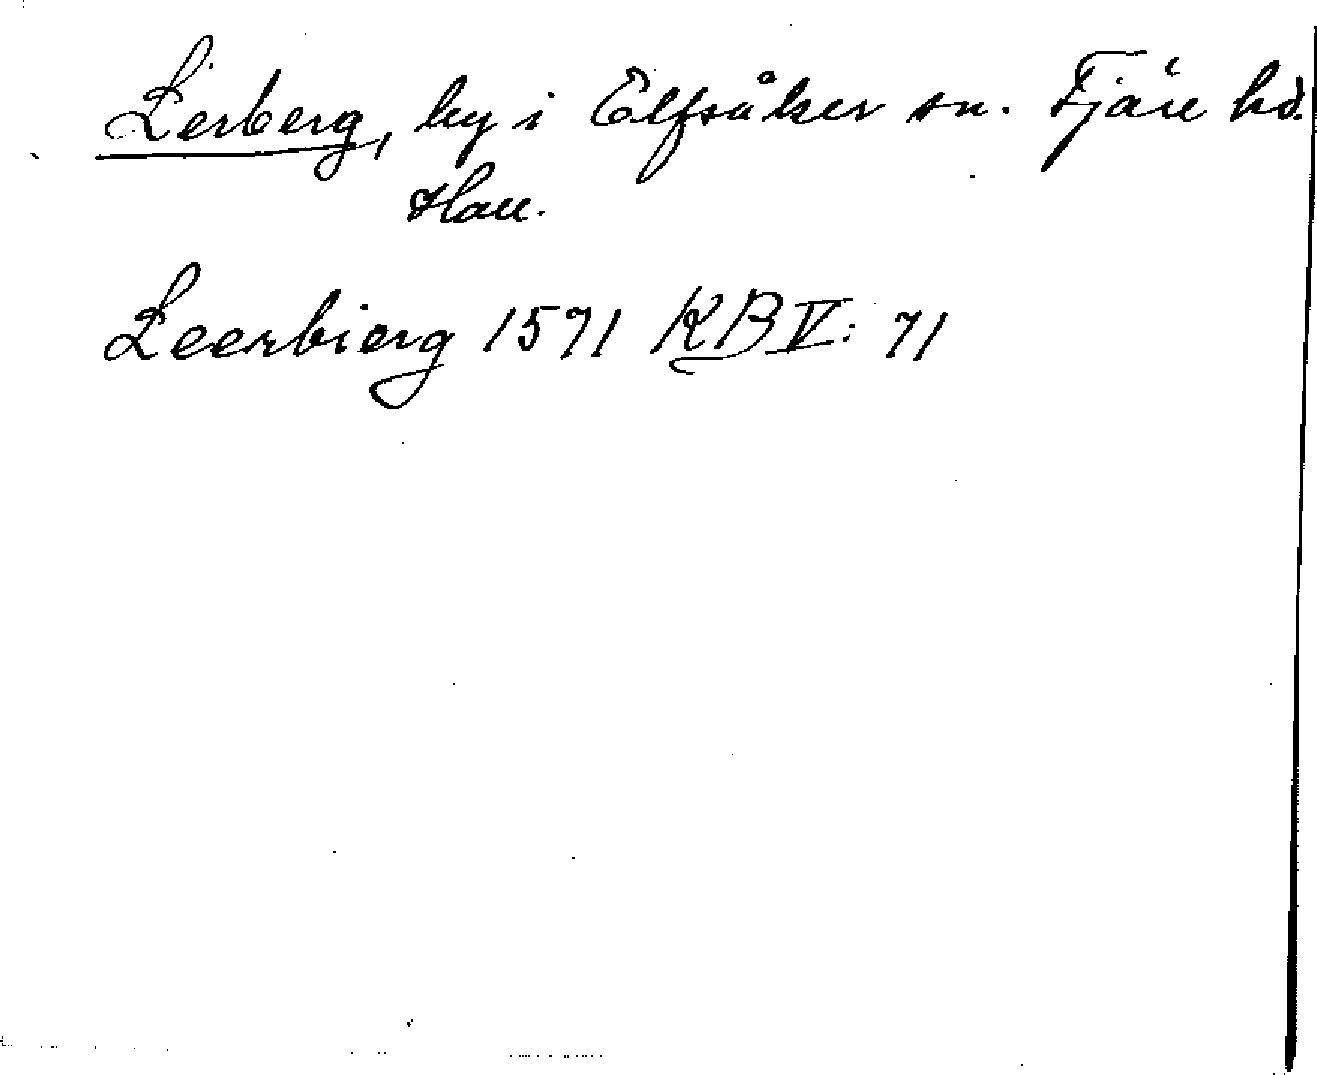 Lerberg, by i Elfsåker sn. Fjäre hd.
Hall.
Leerbierg 1571 KB V: 71